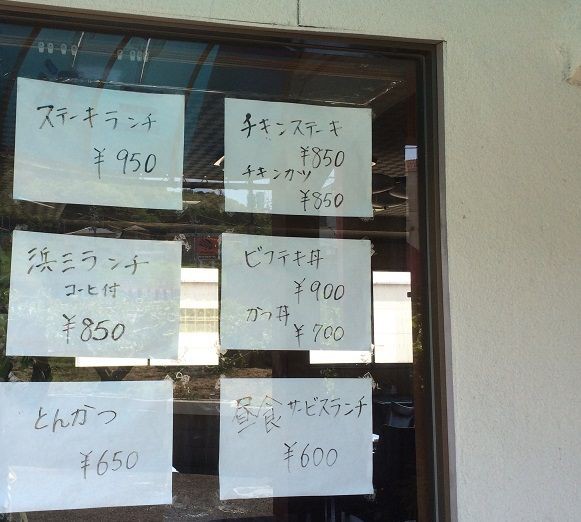 ステーキランチ
¥950
チキンステーキ
¥850
チキンカツ
¥850
浜三ランチ
コーヒ付
¥850
ビフテキ丼
¥900
かつ丼
¥700
とんかつ
¥650
昼食サービスランチ
¥600